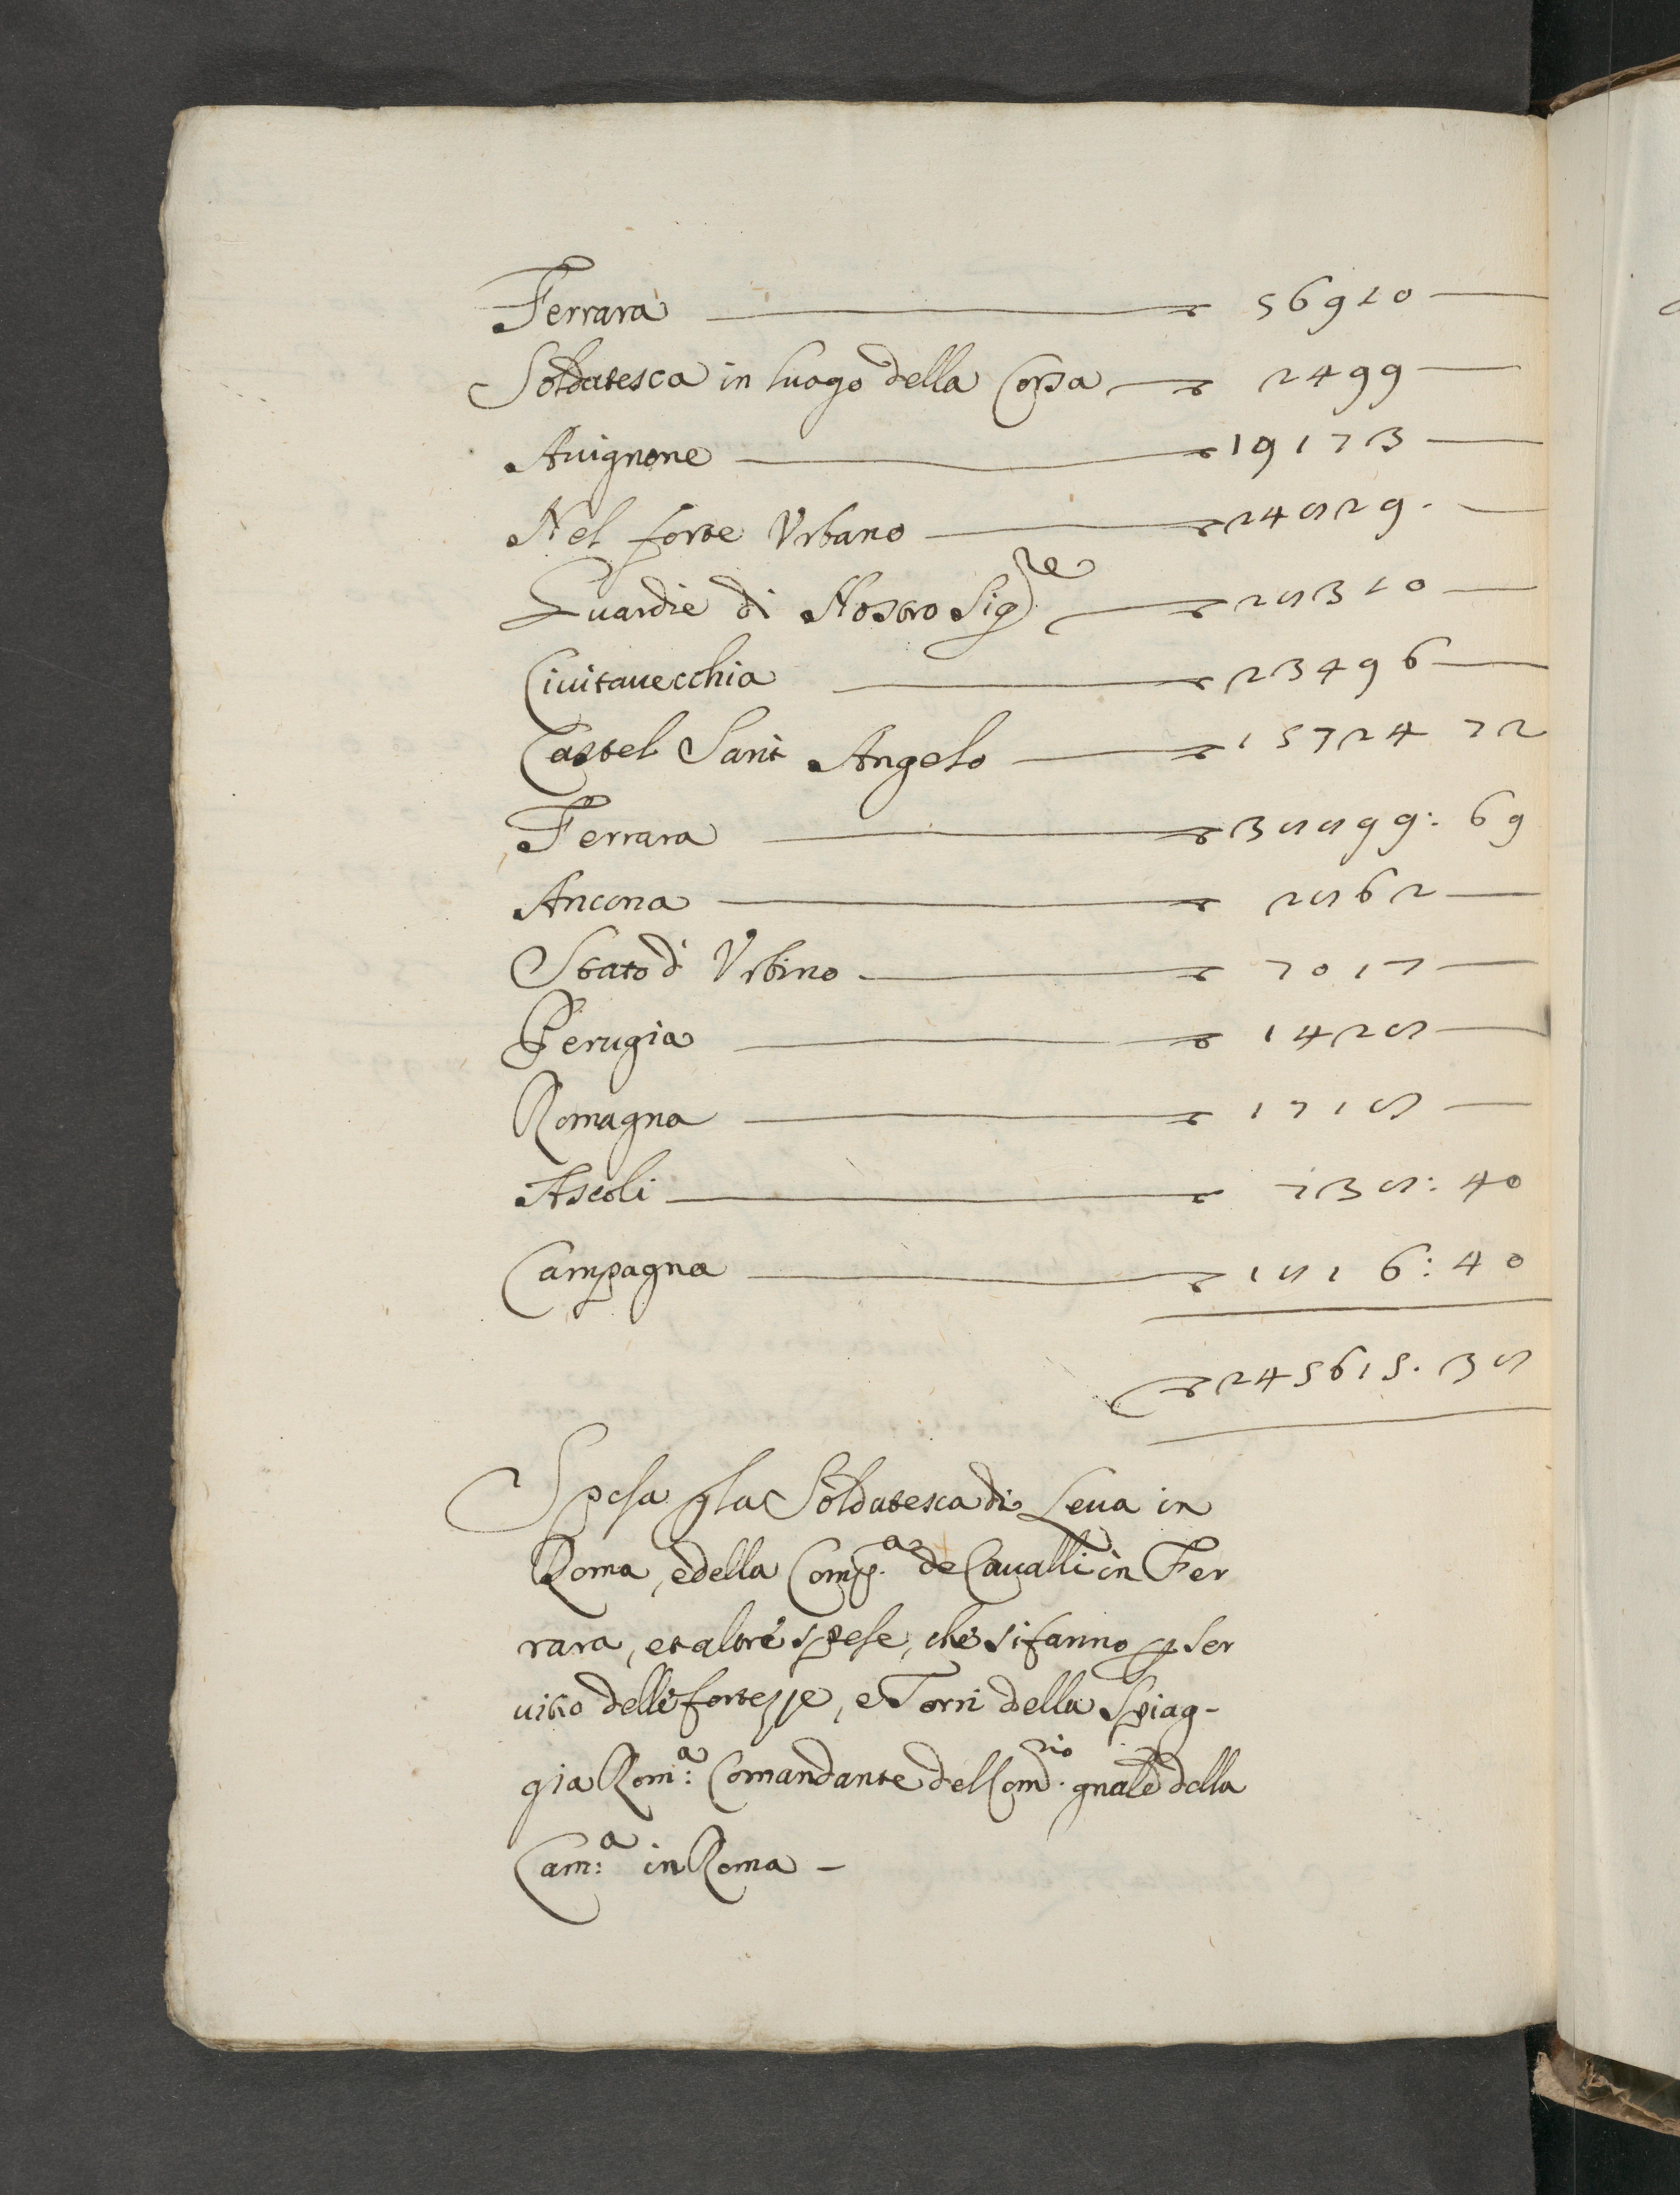 Ferrara — 56910 —
Soldatesca in luogo della Corsa — 2499 —
Auignone — 19173 —
Nel forte Vrbano — 24829. —
Guardie di Nostro Sig.re — 28310 —
Ciuitauecchia — 23496 —
Castel Sant Angelo — 15724 72
Ferrara — 38899: 69
Ancona — 2862 —
Stato d' Vrbino — 7017 —
Perugia — 1428 —
Romagna — 1718 —
Ascoli — 738: 40
Campagna — 1816: 40
245615. 38
Spesa p la Soldatesca di Leua in
Roma, e della Comp.a de Caualli in Fer
rara, et altre spese, che si fanno p ser
uitio delle fortezze, e Torri della Spiag-
gia Rom:a Comandante del Com.rio gnale della
Cam:a in Roma —